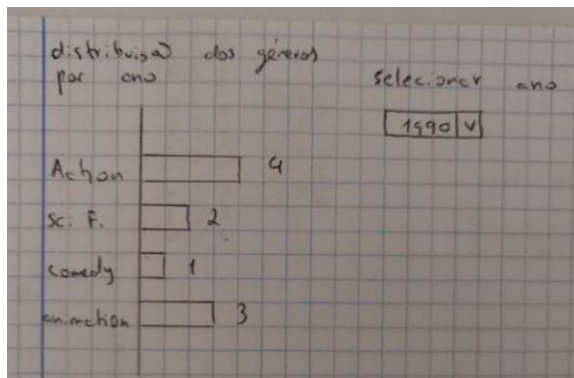 distribuisão dos géneros
por ano
selecionar ano
1990 V
Action 4
sc. F. 2
comedy 1
animation 3